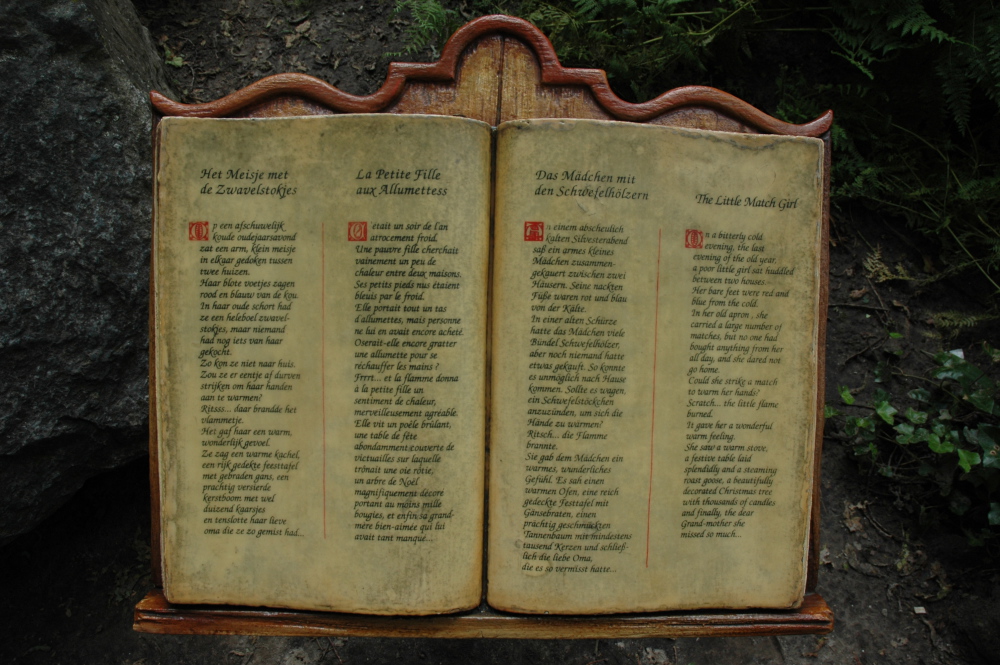 Het Meisje met
de Zwavelstokjes
Op een afschuwelijk
koude oudejaarsavond
zat een arm, klein meisje
in elkaar gedoken tussen
twee huizen.
Haar blote voetjes zagen
rood en blauw van de kou.
In haar oude schort had
ze een heleboel zwavel-
stokjes, maar niemand
had nog iets van haar
gekocht.
Zo kon ze niet naar huis.
Zou ze er eentje af durven
strijken om haar handen
aan te warmen?
Ritsss... daar brandde het
vlammetje.
Het gaf haar een warm,
wonderlijk gevoel.
Ze zag een warme kachel,
een rijk gedekte feesttafel
met gebraden gans, een
prachtig versierde
kerstboom met wel
duizend kaarsjes
en tenslotte haar lieve
oma die ze zo gemist had...
La Petite Fille
aux Allumettess
C'etait un soir de l'an
atrocement froid.
Une pauvre fille cherchais
vainement un peu de
chaleur entre deux maisons.
Ses petits pieds nus étaient
bleuis par le froid.
Elle portait tout un tas
d'allumettes, mais personne
ne lui en avait encore acheté.
Oserait-elle encore gratter
une allumette pour se
réchauffer les mains ?
Frrrt... et la flamme donna
à la petite fille un
sentiment de chaleur,
merveilleusement agréable.
Elle vit un poêle brûlant,
une table de fête
abondamment couverte de
victuailles sur laquelle
trônait une oie rôtie,
un arbre de Noël
magnifiquement décoré
portant au moins mille
bougies, et enfin sa grand-
mère bien-aimée qui lui
avait tant manqué...
Das Mädchen mit
den Schwefelhölzern
An einem abscheulich
kalten Silvesterabend
saß ein armes kleines
Mädchen zusammen-
gekauert zwischen zwei
Häusern. Seine nackten
Füße waren rot und blau
von der Kälte.
In einer alten Schürze
hatte das Mädchen viele
Bündel Schwefelhölzer,
aber noch niemand hatte
etwas gekauft. So konnte
es unmöglich nach Hause
kommen. Sollte es wagen,
ein Schwefelstöckchen
anzuzünden, um sich die
Hände zu wärmen?
Ritsch... die Flamme
brannte.
Sie gab dem Mädchen ein
warmes, wunderliches
Gefühl. Es sah einen
warmen Ofen, eine reich
gedeckte Festtafel mit
Gänsebraten, einen
prächtig geschmückten
Tannenbaum mit mindestens
tausend Kerzen und schließ-
lich die liebe Oma,
die es so vermisst hatte...
The Little Match Girl
On a bitterly cold
evening, the last
evening of the old year,
a poor little girl sat huddled
between two houses.
Her bare feet were red and
blue from the cold.
In her old apron , she
carried a large number of
matches, but no one had
bought anything from her
all day, and she dared not
go home.
Could she strike a match
to warm her hands?
Scratch... the little flame
burned.
It gave her a wonderful
warm feeling.
She saw a warm stove,
a festive table laid
splendidly and a steaming
roast goose, a beautifully
decorated Christmas tree
with thousands of candles
and finally, the dear
Grand-mother she
missed so much...